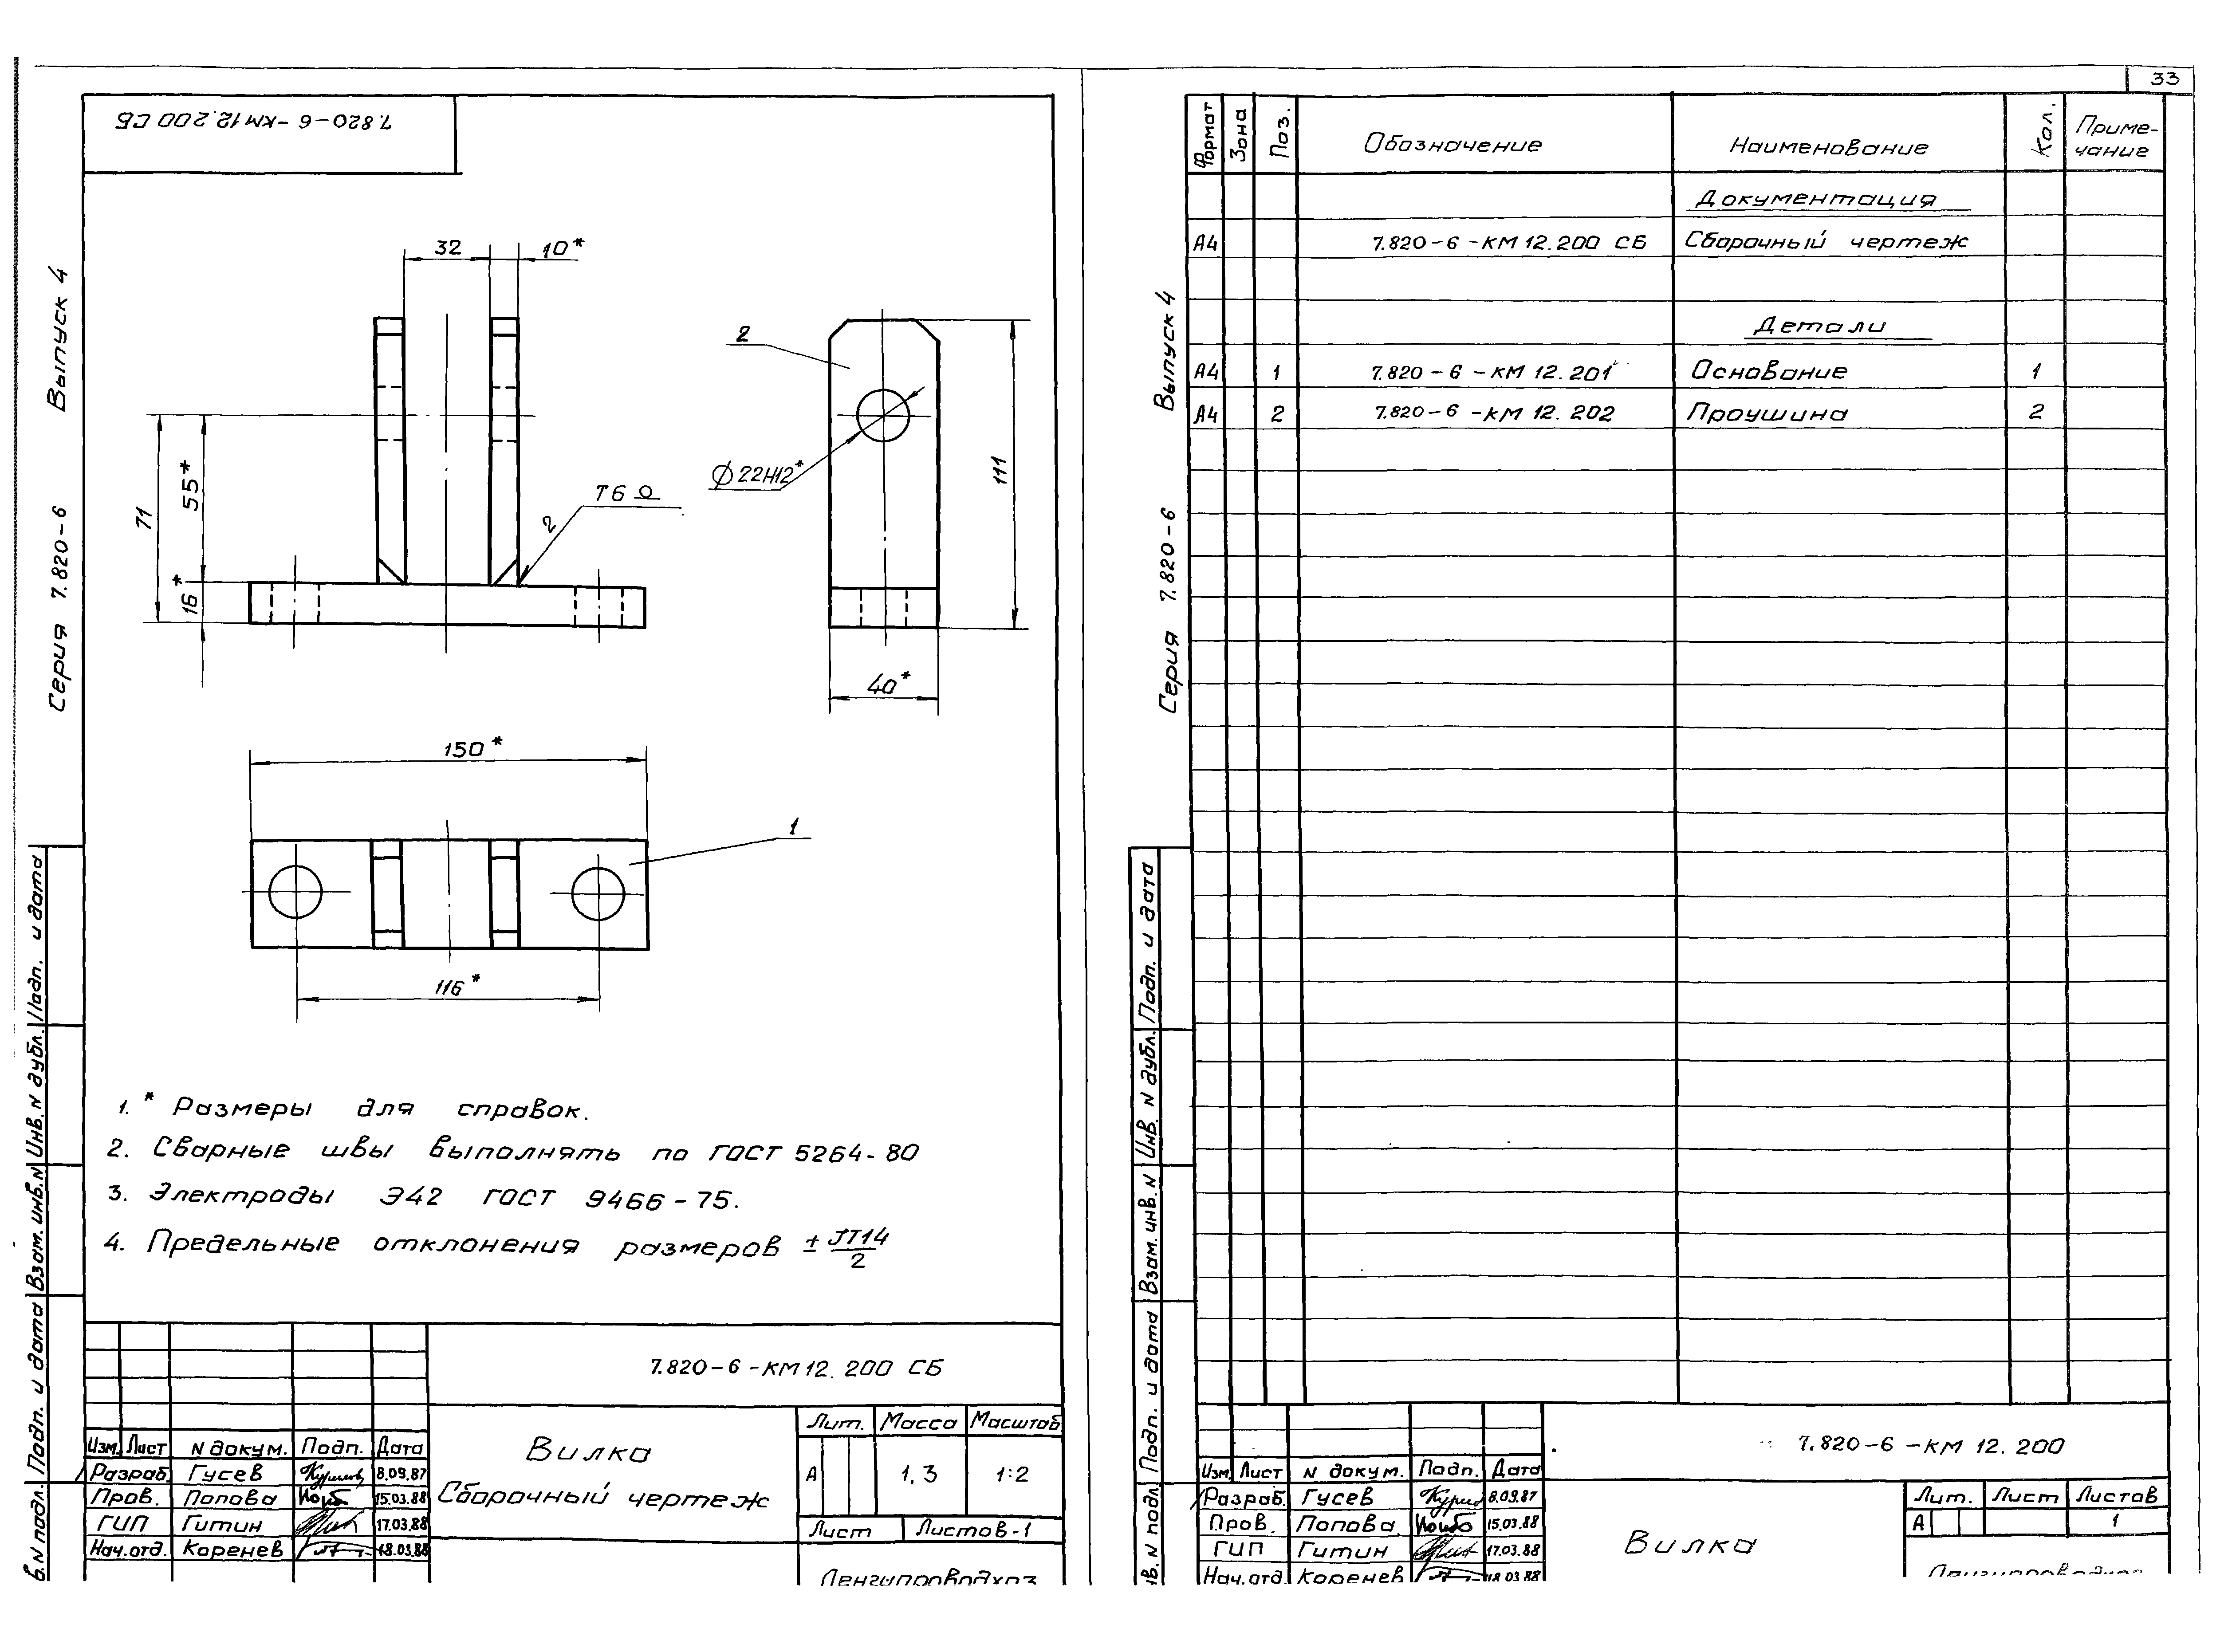 33
7.820-6-КМ12.200 СБ
Серия 7.820-6 Выпуск 4
32
10*
2
111
55*
71
16*
Т6
2
Ø22Н12*
40*
150*
1
116*
1. * Размеры для справок.
2. Сварные швы выполнять по ГОСТ 5264-80
3. Электроды Э42 ГОСТ 9466-75.
4. Предельные отклонения размеров ± JT14/2
7.820-6-КМ12.200 СБ
Вилка
Сборочный чертеж
Лит. Масса Масштаб
А 1,3 1:2
Лист Листов-1
Ленгипроводхоз
Изм. Лист N докум. Подп. Дата
Разраб. Гусев 8.09.87
Пров. Попова 15.03.88
ГИП Гитин 17.03.88
Нач.отд. Коренев 18.03.88
в.N подл. Подп. и дата Взам.инв.N Инв.N дубл. Подп. и дата
Серия 7.820-6 Выпуск 4
Формат Зона Поз. Обозначение Наименование Кол. Приме-
чание
Документация
А4 7.820-6-КМ12.200 СБ Сборочный чертеж
Детали
А4 1 7.820-6-КМ12.201 Основание 1
А4 2 7.820-6-КМ12.202 Проушина 2
7.820-6-КМ12.200
Изм. Лист N докум. Подп. Дата
Разраб. Гусев 8.09.87
Пров. Попова 15.03.88
ГИП Гитин 17.03.88
Нач.отд. Коренев 18.03.88
Вилка
Лит. Лист Листов
А 1
Ленгипроводхоз
нв.N подл. Подп. и дата Взам.инв.N Инв. N дубл. Подп. и дата